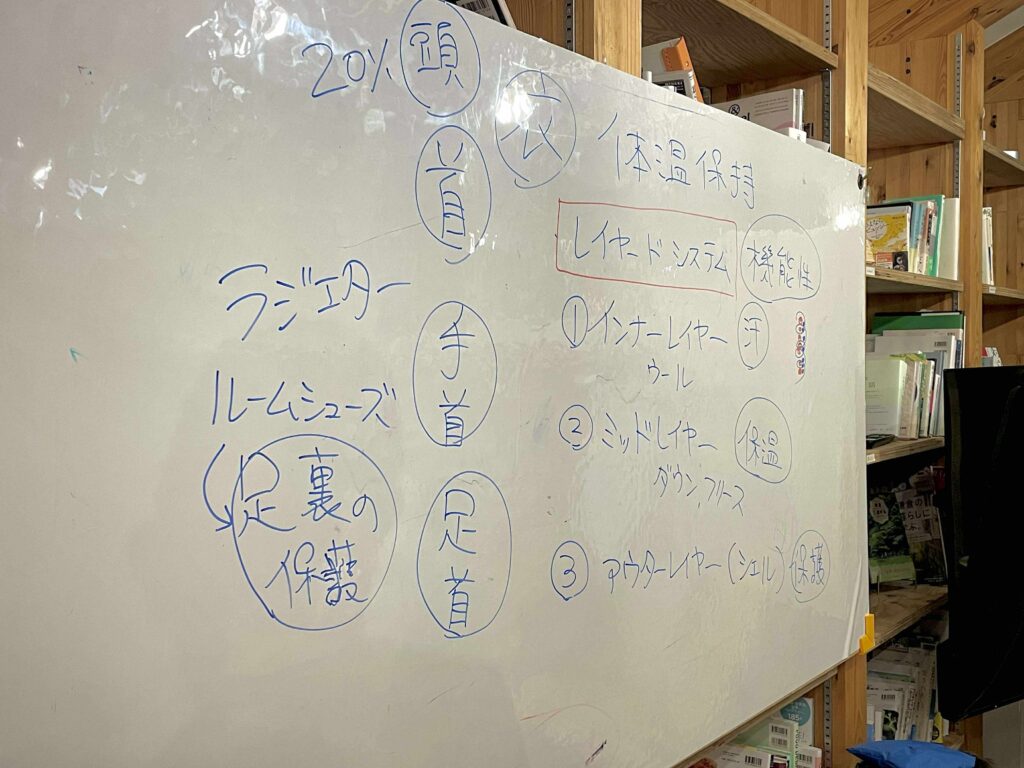 衣 体温保持
レイヤードシステム 機能性
① インナーレイヤー 汗
ウール
② ミッドレイヤー 保温
ダウン、フリース
③ アウターレイヤー(シェル) 保護
20% 頭
首
ラジエター
手首
ルームシューズ
足裏の
保護
足首